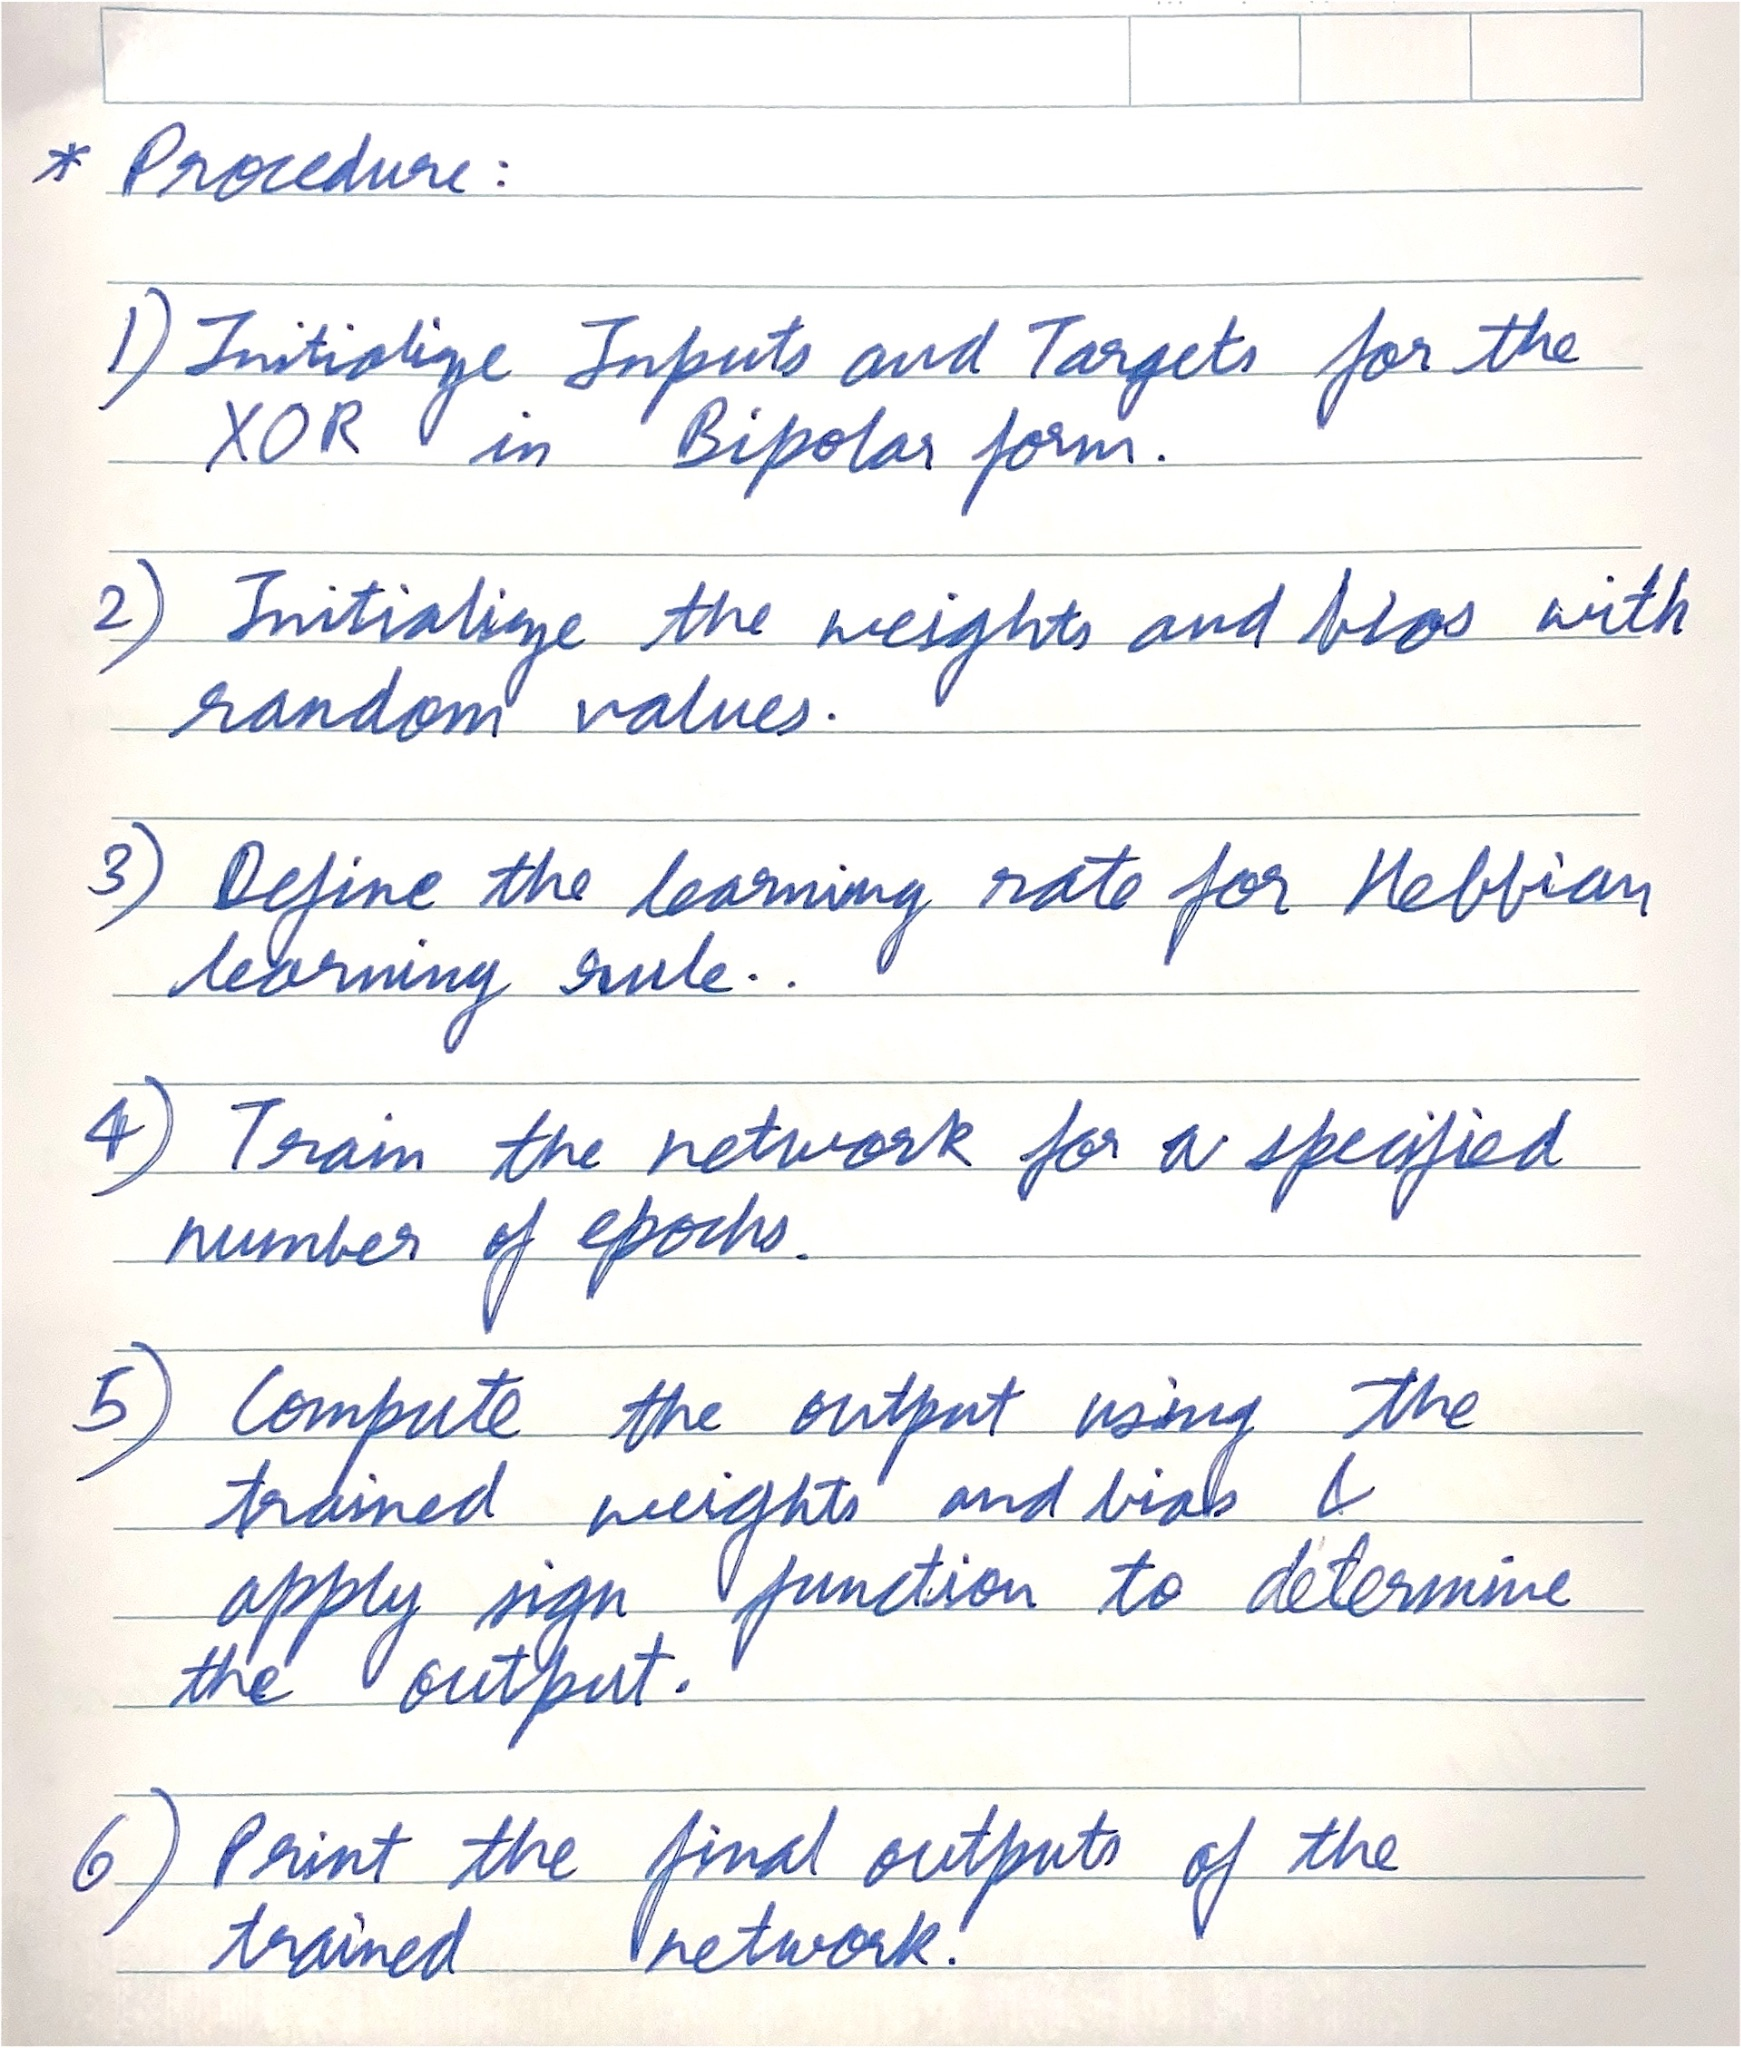 * Procedure:
1) Initialize Inputs and Targets for the
XOR in Bipolar form.
2) Initialize the weights and bias with
random values.
3) Define the learning rate for Hebbian
learning rule..
4) Train the network for a specified
number of epochs.
5) Compute the output using the
trained weights and bias &
apply sign function to determine
the output.
6) Print the final outputs of the
trained network.